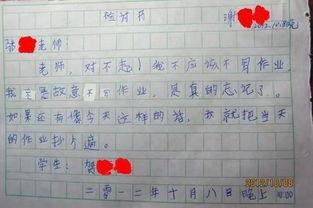 检讨书
谢
2012.10.8晚
老师：
老师，对不起！我不应该不写作业，
我不是故意不写作业，是真的忘记了。
如果还有像今天这样的话，我就把当天
的作业抄5遍。
学生：贺
二零一二年十月八日晚上10:00
2012/10/08